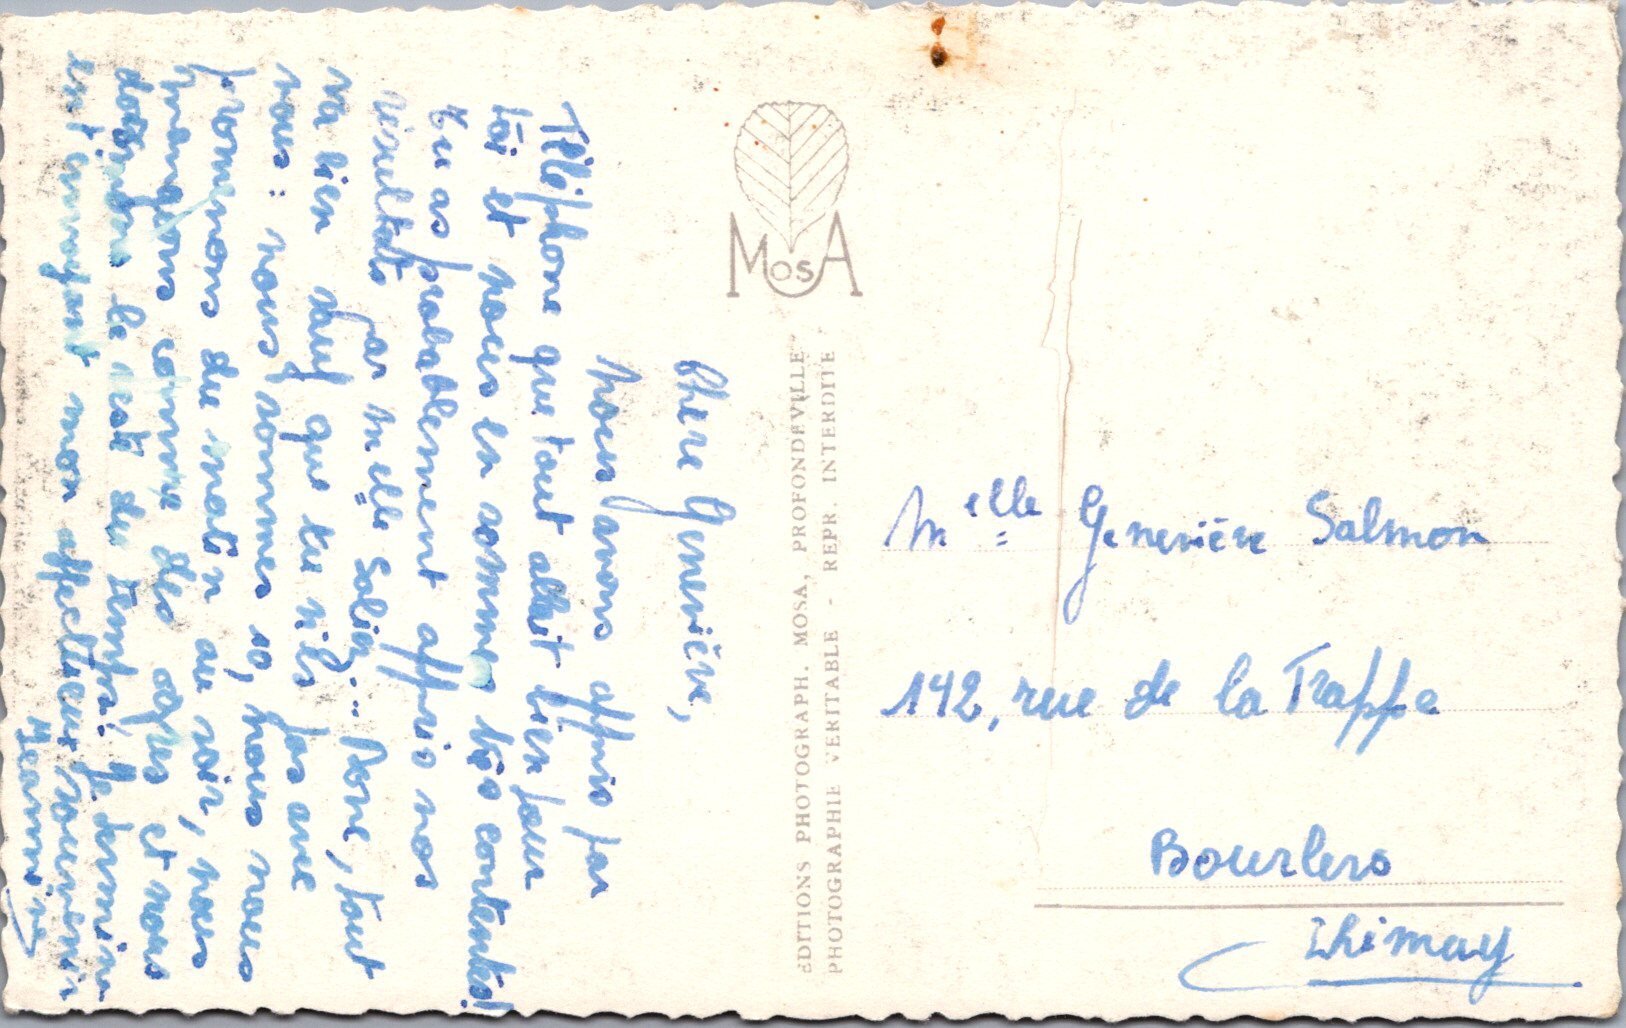 Chère Geneviève,
Nous avons appris par
Téléphone que tout allait bien pour
toi et nous en sommes très contentes!
Tu as probablement appris nos
résultats par Melle Solig... Donc, tout
va bien sauf que tu n'es pas avec
nous: nous sommes 10, nous nous
promenons du matin au soir, nous
mangeons comme des ogres et nous
dormons le reste du temps! Je termine
en t'envoyant mon affectueux souvenir
MOSA
EDITIONS PHOTOGRAPH. MOSA, PROFONDEVILLE
PHOTOGRAPHIE VERITABLE - REPR. INTERDITE
Melle Geneviève Salmon
142, rue de la Trappe
Bourlers
Chimay